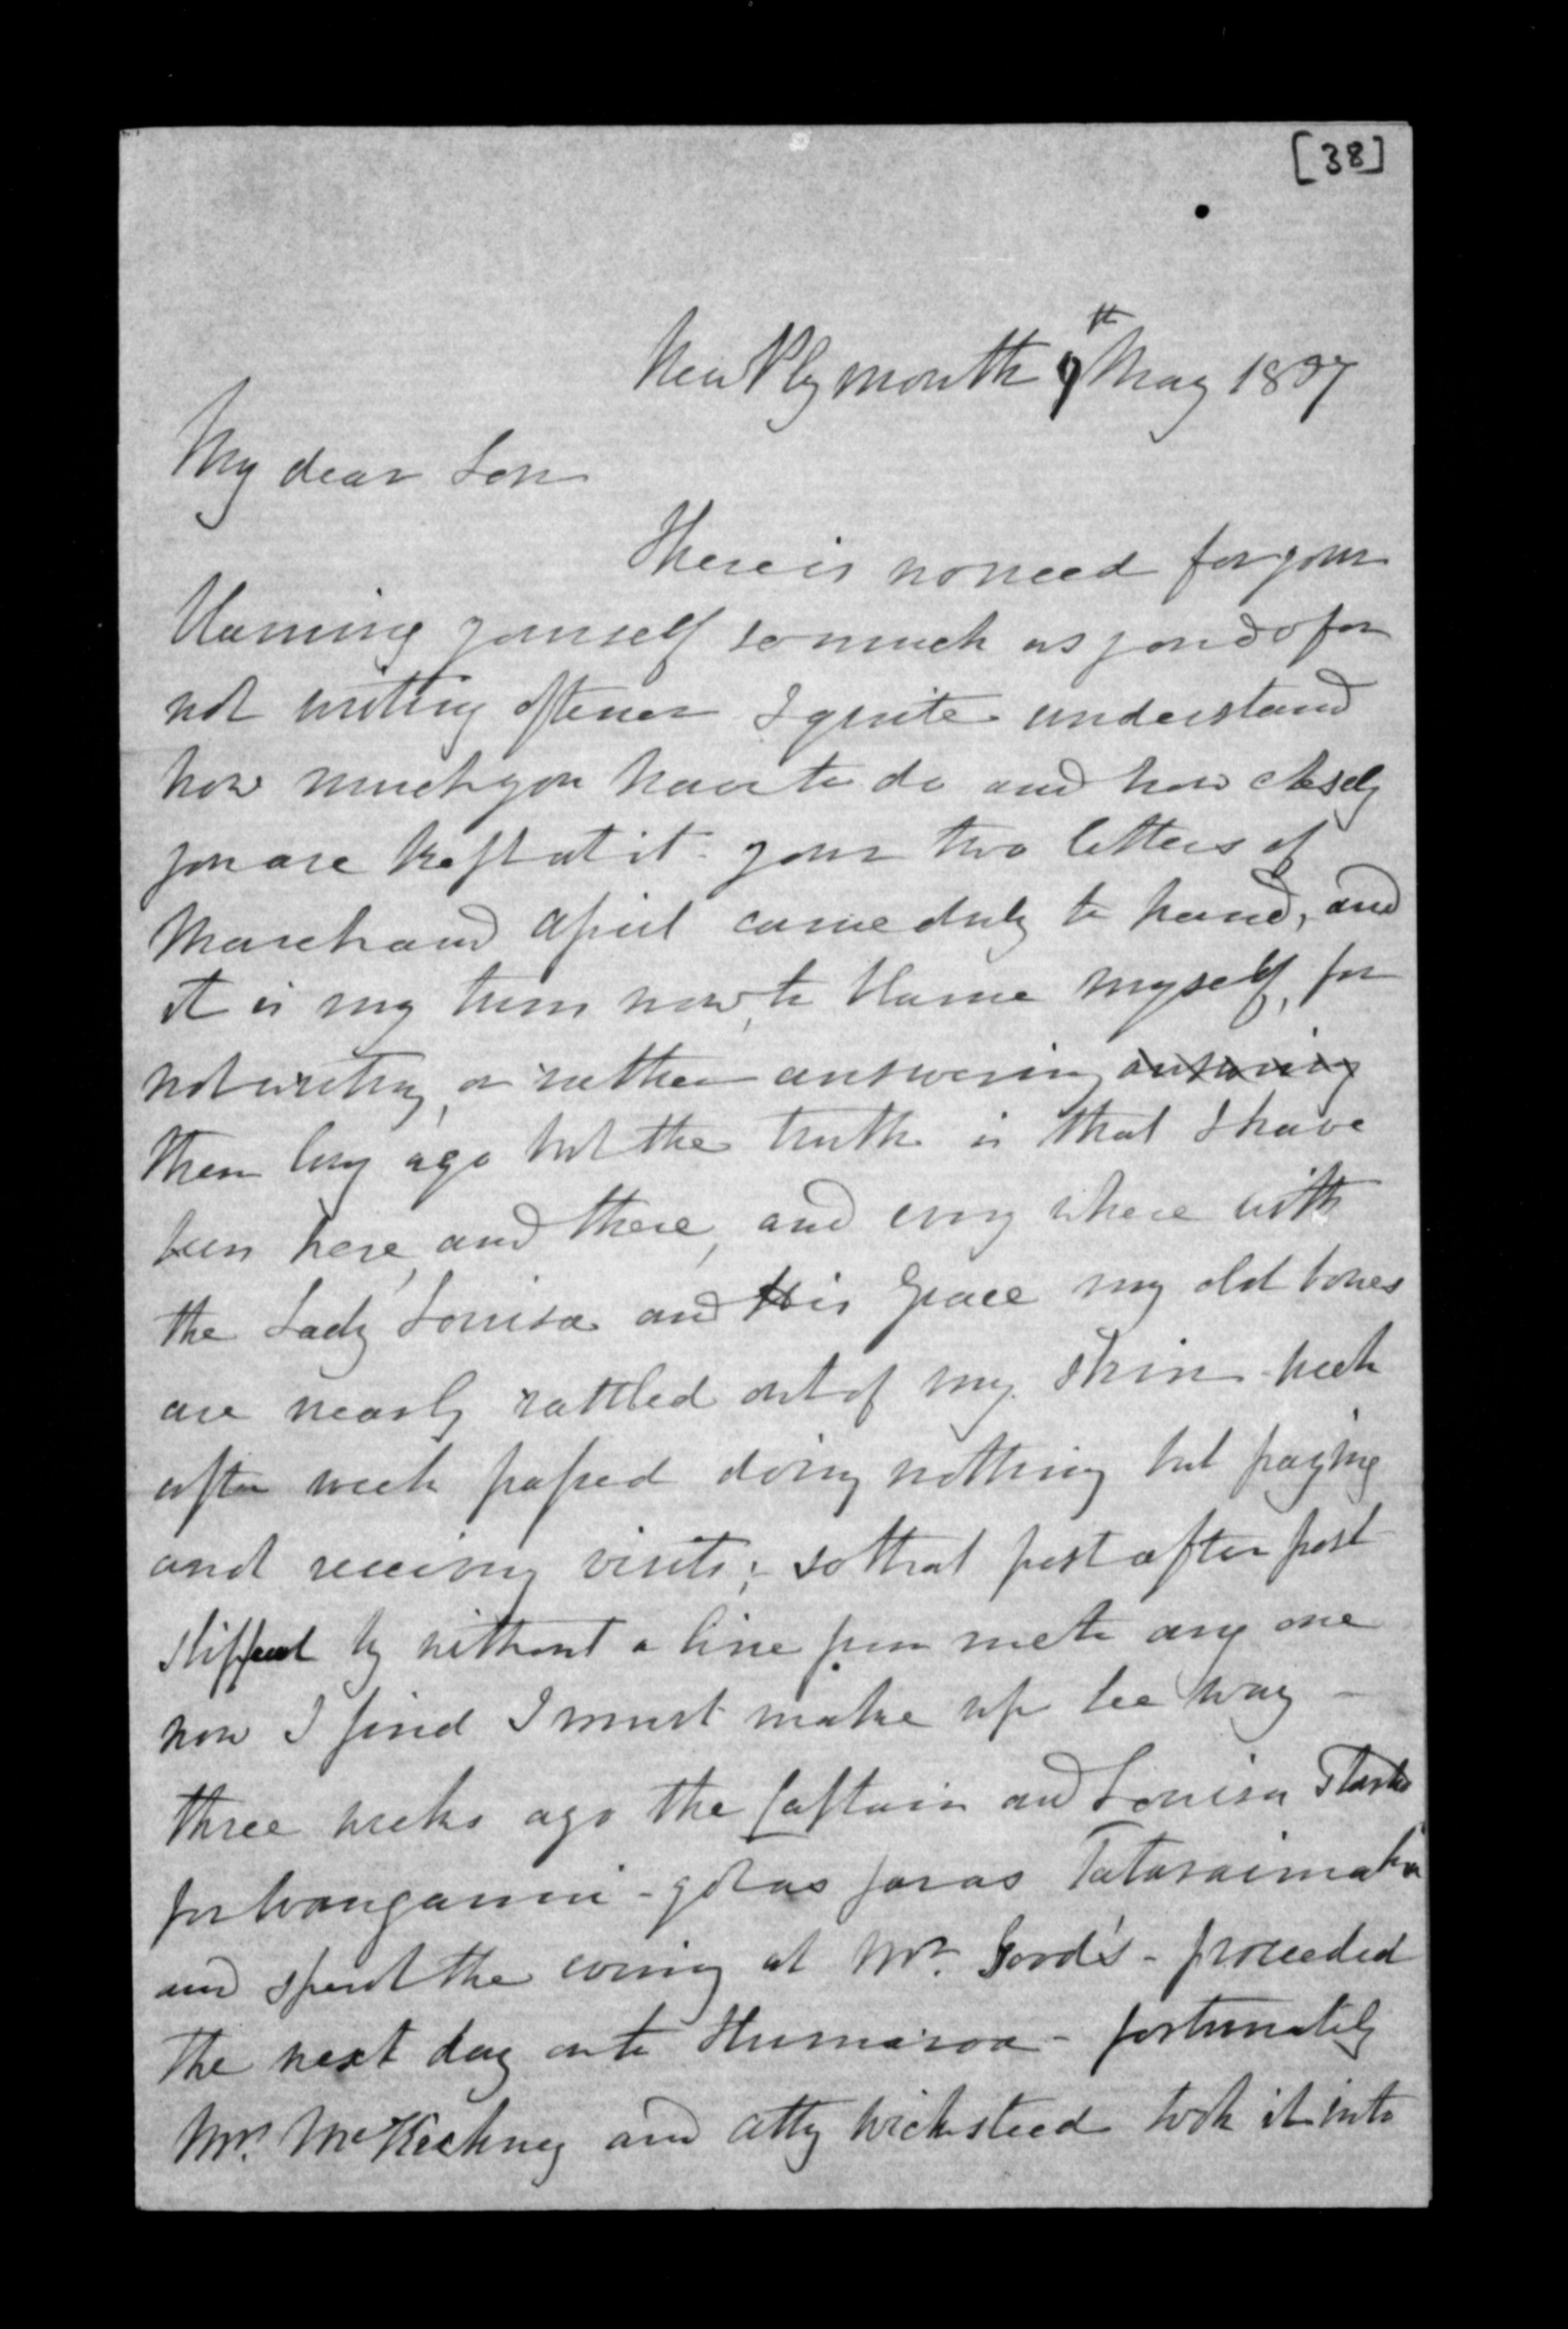 [38]
New Plymouth 9th May 1857
My dear Son
There is no need for your
blaming yourself so much as you do for
not writing oftener I quite understand
how much you have to do and how closely
you are kept at it - your two letters of
March and April came duly to hand, and
it is my turn now, to blame myself, for
not writing, or rather answering answering
them long ago but the truth is that I have
been here, and there, and every where with
the Lady Louisa and His Grace my old bones
are nearly rattled out of my skin - week
after week passed doing nothing but paying
and receiving visits; - so that post after post
slipped by without a line from me to any one
now I find I must make up lee way -
three weeks ago the Captain and Louisa
for Wanganui - got as far as Tataraimaka
and spent the evening at Mr. Good's - proceeded
the next day on to - fortunately
and Atty Wicksteed took it into